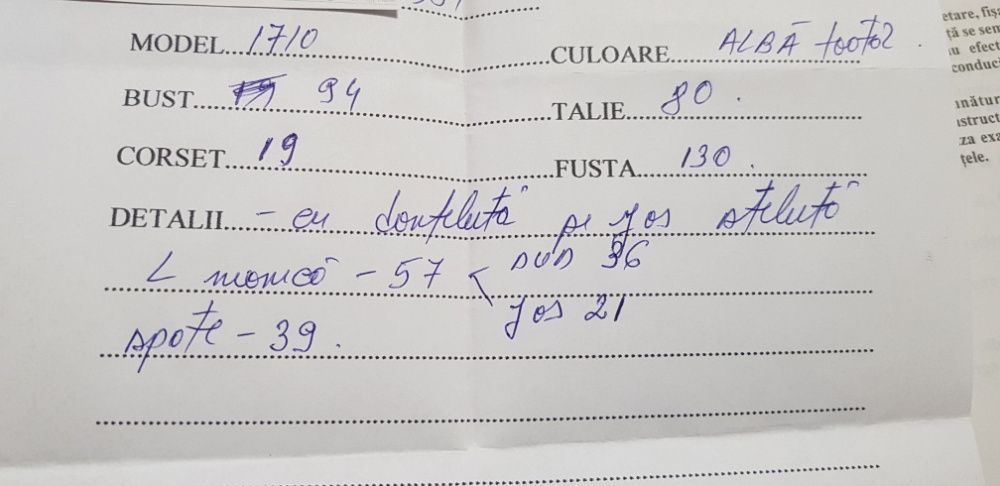 MODEL...1710 CULOARE...ALBĂ toată
BUST...94 TALIE...80.
CORSET...19 FUSTA...130.
DETALII...- cu dantelută pe jos steluță
L mânecă - 57 sus 36
jos 21
spate - 39.
etare, fișa
ță se sem
au efect
conduci
nstruct
za exa
țele.